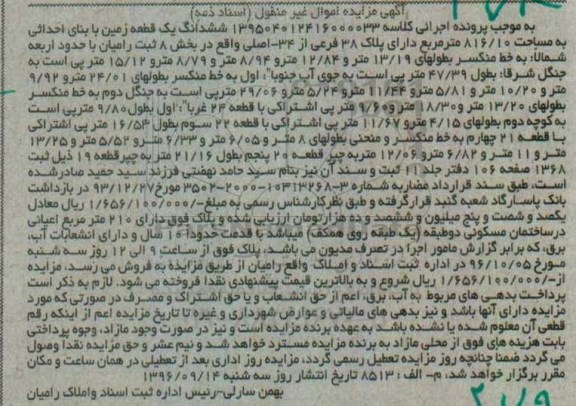 آگهی مزایده اموال غیر منقول (اسناد ذمه)
به موجب پرونده اجرائی کلاسه ۱۳۹۵۰۴۰۱۲۴۱۶۰۰۰۰۳۳ ششدانگ یک قطعه زمین با بنای احداثی
به مساحت ۸۱۶/۱۰ مترمربع دارای پلاک ۳۸ فرعی از ۳۴-اصلی واقع در بخش ۸ ثبت رامیان با حدود اربعه
شمالا: به خط منکسر بطولهای ۱۳/۱۹ متر و ۱۲/۸۴ مترو ۸/۹۴ متر و ۸/۷۹ مترو ۱۵/۱۲ متر پی است به
جنگل شرقا: بطول ۴۷/۳۹ متر پی است به جوی آب جنوبا: اول به خط منکسر بطولهای ۲۴/۰۱ مترو ۹/۹۲
متر و ۱۰/۲۰ متر و ۵/۸۱ مترو ۱۱/۴۴ مترو ۵/۲۴ مترو ۲۹/۰۶ مترپی است به جنگل دوم به خط منکسر
بطولهای ۱۳/۲۰ متر و ۱۸/۳۰ متر و ۹/۶۰ متر پی اشتراکی با قطعه ۲۴ غربا: اول بطول ۹/۸۰ مترپی است
به کوچه دوم بطولهای ۴/۱۵ مترو ۱۱/۶۷ متر پی اشتراکی با قطعه ۲۲ سوم بطول ۱۶/۵۳ متر پی اشتراکی
با قطعه ۲۱ چهارم به خط منکسر و منحنی بطولهای ۸ متر و ۶/۰۵ متر و ۶/۳۳ مترو ۵/۵۲ مترو ۱۳/۲۵
متر و ۱۱ متر و ۶/۸۲ مترو ۱۲/۰۶ متربه چپر قطعه ۲۰ پنجم بطول ۲۱/۱۶ متر به چپر قطعه ۱۹ ذیل ثبت
۱۳۶۸ صفحه ۱۰۶ دفتر جلد ۱۱ ثبت و سند آن نیز بنام سید حامد نهضتی فرزند سید حمید صادر شده
است، طبق سند قرارداد مضاربه شماره ۳-۱۰۳۱۳۲۶۸-۲۰۰۰-۳۵۰۲ مورخ ۹۳/۱۲/۲۷ در بازداشت
بانک پاسارگاد شعبه گنبد قرارگرفته و طبق نظرکارشناس رسمی به مبلغ-/۱/۶۵۶/۱۰۰/۰۰۰ ریال معادل
یکصد و شصت و پنج میلیون و ششصد و ده هزار تومان ارزیابی شده و پلاک فوق دارای ۲۱۰ متر مربع اعیانی
درساختمان مسکونی دوطبقه (یک طبقه روی همکف) میباشد با قدمت حدودا ۱۰ سال و دارای انشعابات آب،
برق، که برابر گزارش مامور اجرا در تصرف مدیون می باشد، پلاک فوق از ساعت ۹ الی ۱۲ روز سه شنبه
مورخ ۹۶/۱۰/۰۵ در اداره ثبت اسناد و املاک واقع رامیان از طریق مزایده به فروش می رسد، مزایده
از-/۱/۶۵۶/۱۰۰/۰۰۰ ریال شروع و به بالاترین قیمت پیشنهادی نقدا فروخته می شود. لازم به ذکر است
پرداخت بدهی های مربوط به آب، برق، اعم از حق انشعاب و یا حق اشتراک و مصرف در صورتی که مورد
مزایده دارای آنها باشد و نیز بدهی های مالیاتی و عوارض شهرداری و غیره تا تاریخ مزایده اعم از اینکه رقم
قطعی آن معلوم شده یا نشده باشد به عهده برنده مزایده است و نیز در صورت وجود مازاد، وجوه پرداختی
بابت هزینه های فوق از محلی مازاد به برنده مزایده مسترد خواهد شد و نیم عشر و حق مزایده نقدا وصول
می گردد ضمنا چنانچه روز مزایده تعطیل رسمی گردد، مزایده روز اداری بعد از تعطیلی در همان ساعت و مکان
مقرر برگزار خواهد شد، م- الف : ۸۵۱۳ تاریخ انتشار روز سه شنبه ۱۳۹۶/۰۹/۱۴
بهمن سارلی-رئیس اداره ثبت اسناد واملاک رامیان